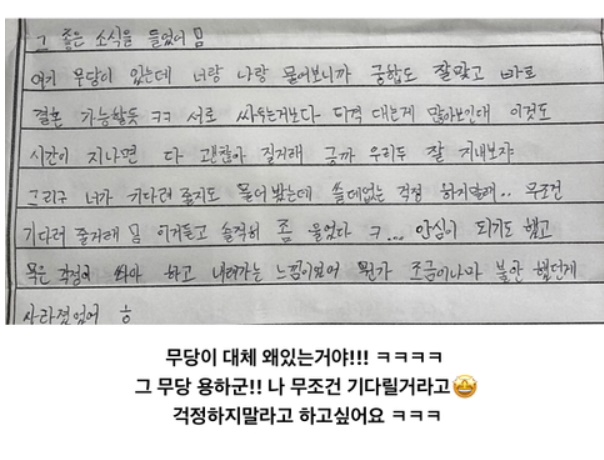 그 좋은 소식을 들었어 맘
여기 무당이 있는데 너랑 나랑 물어보니까 궁합도 잘맞고 바로
결혼 가능할듯 ㅋㅋ 서로 싸우는거보다 티격 대는게 많아보인대 이것도
시간이 지나면 다 괜찮아 질거래 긍까 우리두 잘 지내보자
그리구 너가 기다려 줄지도 물어 봤는데 쓸데없는 걱정 하지말래.. 무조건
기다려 줄거래 맘 이거듣고 솔직히 좀 울었다 ㅋ... 안심이 되기도 했고
묵은 걱정이 쏴아 하고 내려가는 느낌이였어 뭔가 조금이나마 불안 했던게
사라졌었어 ㅎ
무당이 대체 왜있는거야!!! ㅋㅋㅋㅋ
그 무당 용하군!! 나 무조건 기다릴거라고🤩
걱정하지말라고 하고싶어요 ㅋㅋㅋ